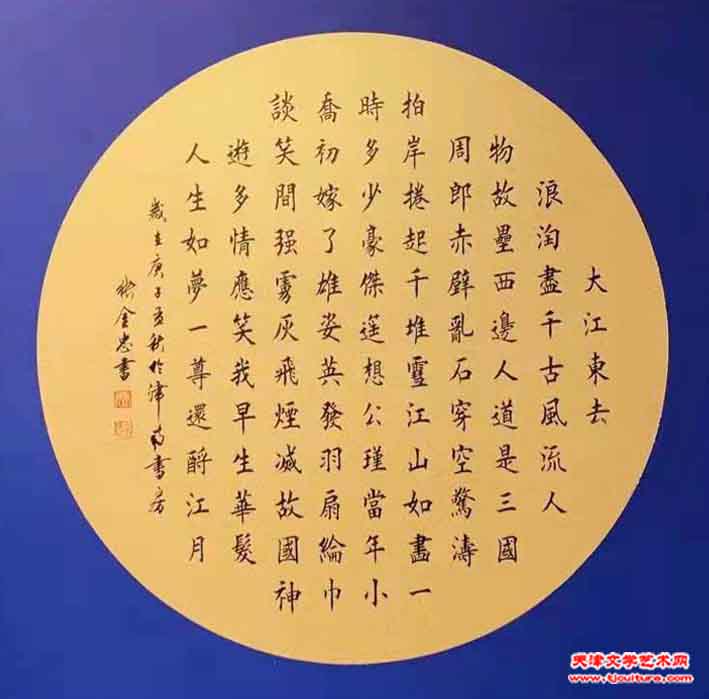 大江東去
浪淘盡千古風流人
物故壘西邊人道是三國
周郎赤壁亂石穿空驚濤
拍岸捲起千堆雪江山如畫一
時多少豪傑遥想公瑾當年小
喬初嫁了雄姿英發羽扇綸巾
談笑間强虜灰飛煙滅故國神
遊多情應笑我早生華髮
人生如夢一尊還酹江月
歲在庚子秋於津南書房
金忠書
天津文学艺术网
www.tjculture.com